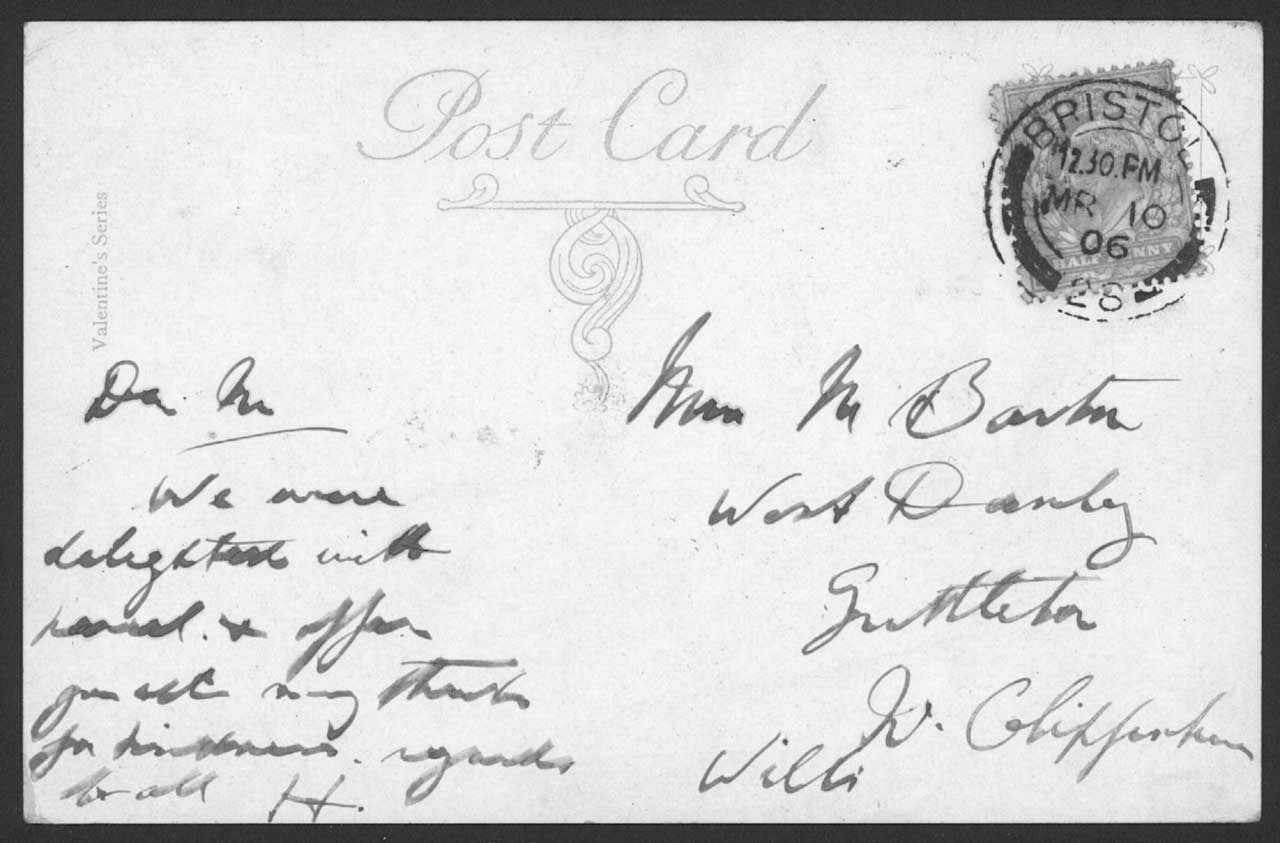 Post Card
Valentine's Series
BRISTOL
12.30.PM
MR 10
06
28
HALF PENNY
Dear M
We were
delighted with
parcel. & offer
you all my thanks
for kindness. regards
to all H.
Miss M Barton
West Dunley
Grittleton
Nr. Chippenham
Wilts